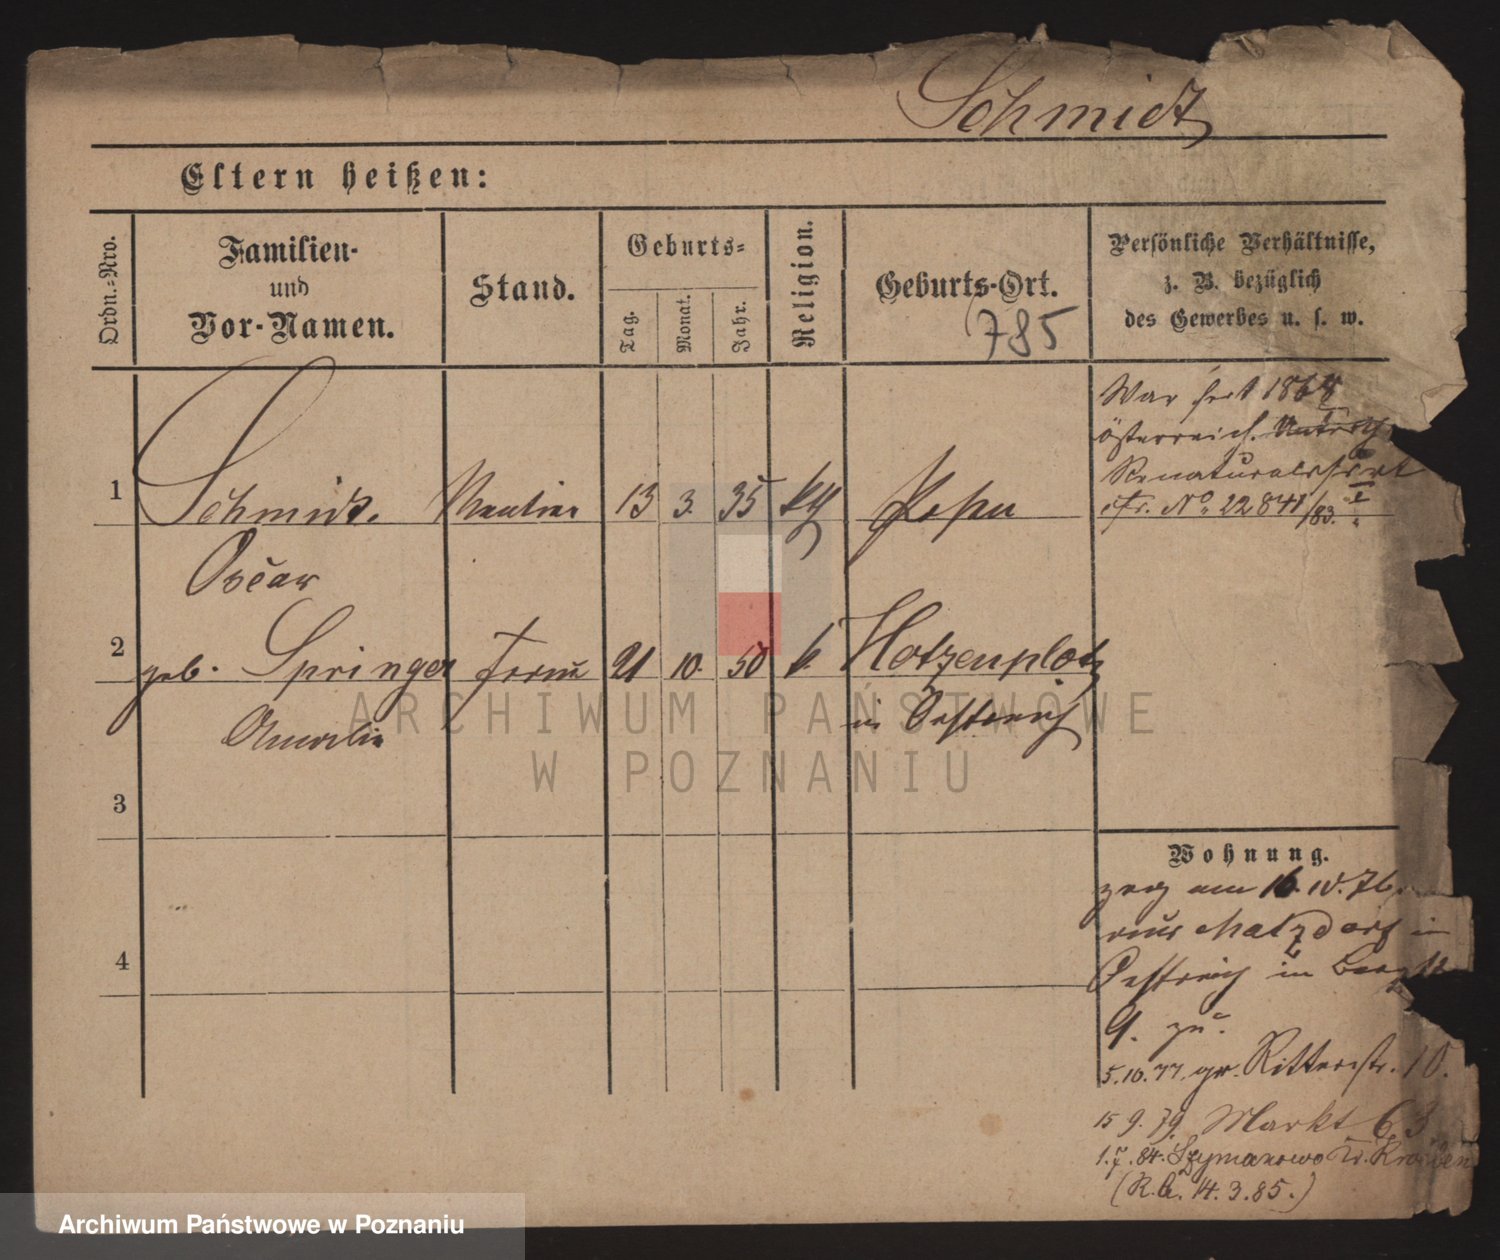 Schmidt
Eltern heißen:
Ordn.-Nro.
Familien-
und
Vor-Namen.
Stand.
Geburts-
Tag.
Monat.
Jahr.
Religion.
Geburts-Ort.
785
Persönliche Verhältnisse,
z. B. bezüglich
des Gewerbes u. s. w.
1
Schmidt. 13 3. 35
Oscar
War seit 1868
österreich.
No. 22841/83. I
2
geb. Springer 21 10. 50 k. Hotzenplotz
Amalie
in Oestreich
3
4
Wohnung.
zog am 16. IV. 76.
aus Matzdorf in
Oestreich in
9. zu.
5.10.77. gr. Ritterstr. 10.
15 9. 79. Markt 63
1.7.84. Szymanowo Kr. Kröben
(R.b. 14.3.85.)
ARCHIWUM PAŃSTWOWE
W POZNANIU
Archiwum Państwowe w Poznaniu